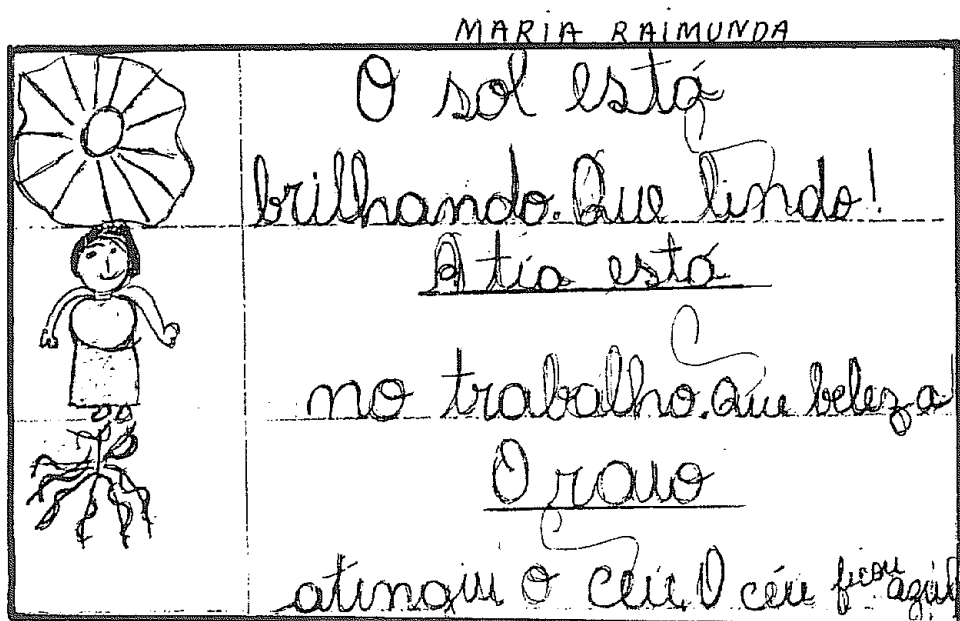 MARIA RAIMUNDA
O sol está
brilhando. Que lindo!
A tia está
no trabalho. Que beleza
O raio
atingiu o céu. O céu ficou azul